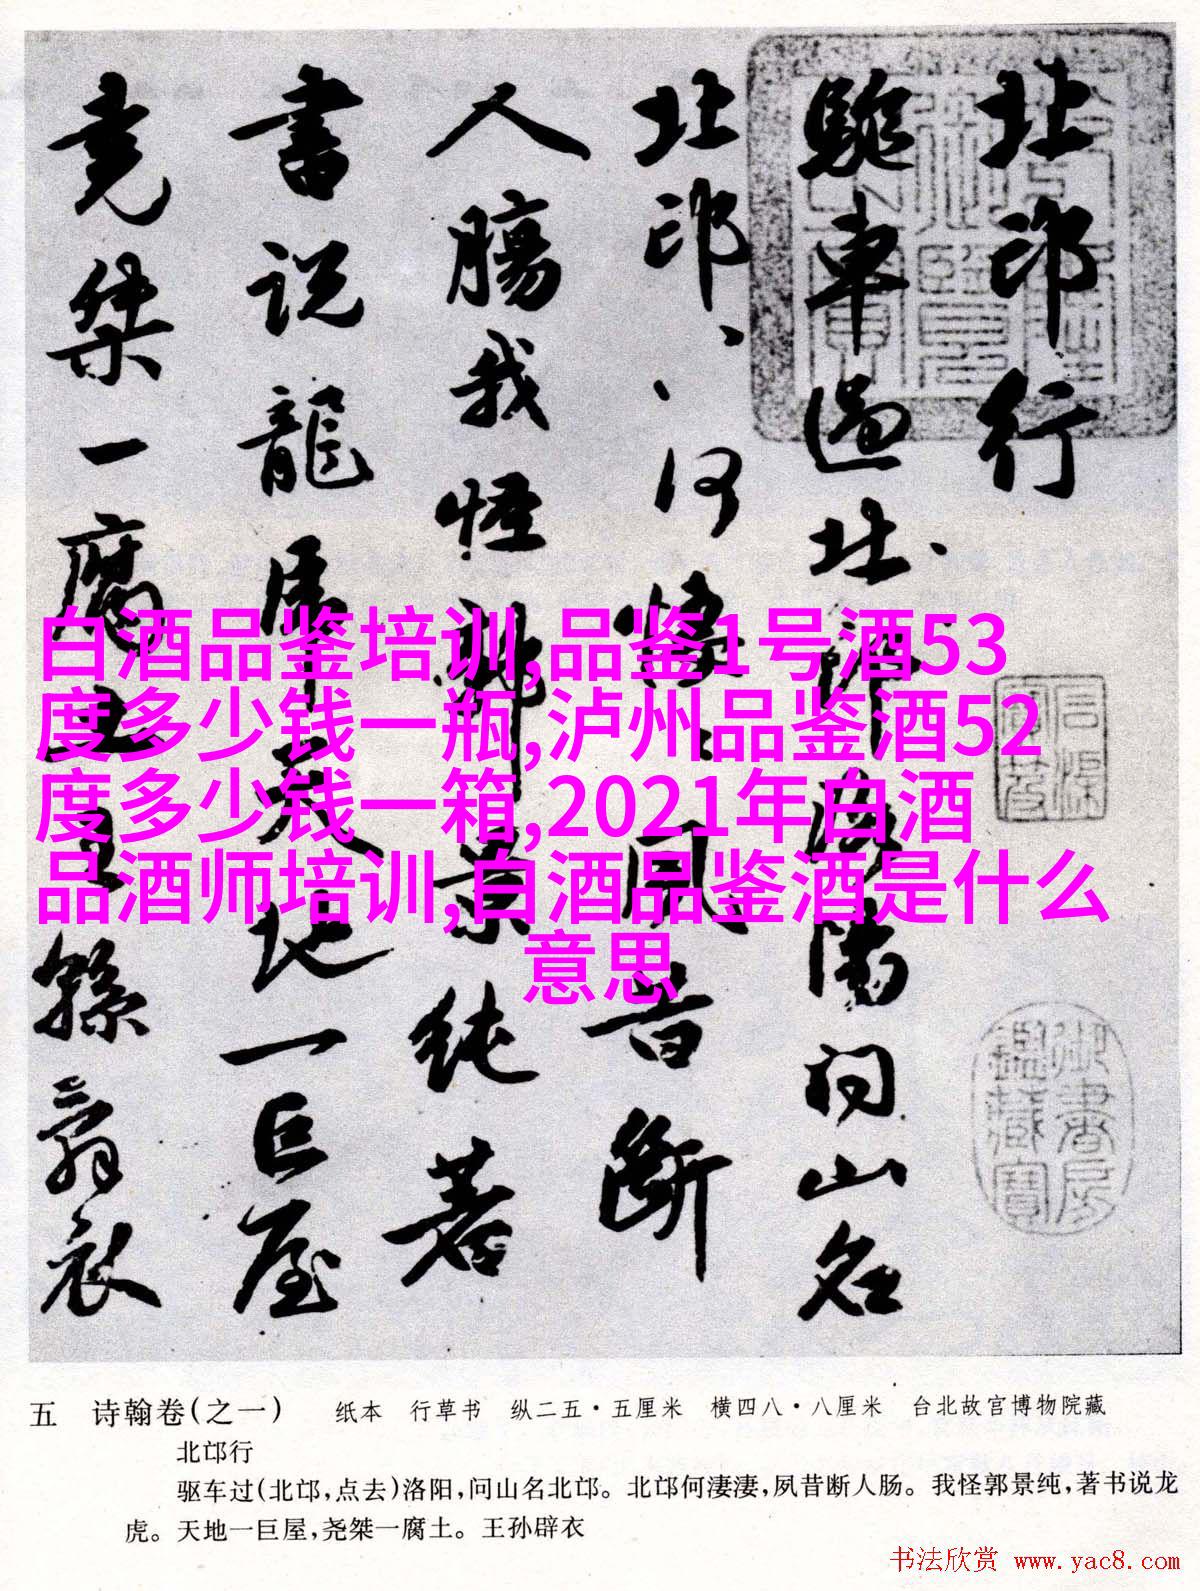 北邙行
驱车过北邙洛阳问山名
北邙、、何悽、、夙昔断
人肠我怪郭景纯著
书说龙虎天地一巨屋
尧桀一腐土王孙辟衣
御书房鉴藏宝
白酒品鉴培训,品鉴1号酒53
度多少钱一瓶,泸州品鉴酒52
度多少钱一箱,2021年白酒
品酒师培训,白酒品鉴酒是什么
意思
五 诗翰卷(之一) 纸本 行草书 纵二五·五厘米 横四八·八厘米 台北故宫博物院藏
北邙行
驱车过(北邙,点去)洛阳,问山名北邙。北邙何淒淒,夙昔断人肠。我怪郭景纯,著书说龙
虎。天地一巨屋,尧桀一腐土。王孙辟衣
书法欣赏 www.yac8.com